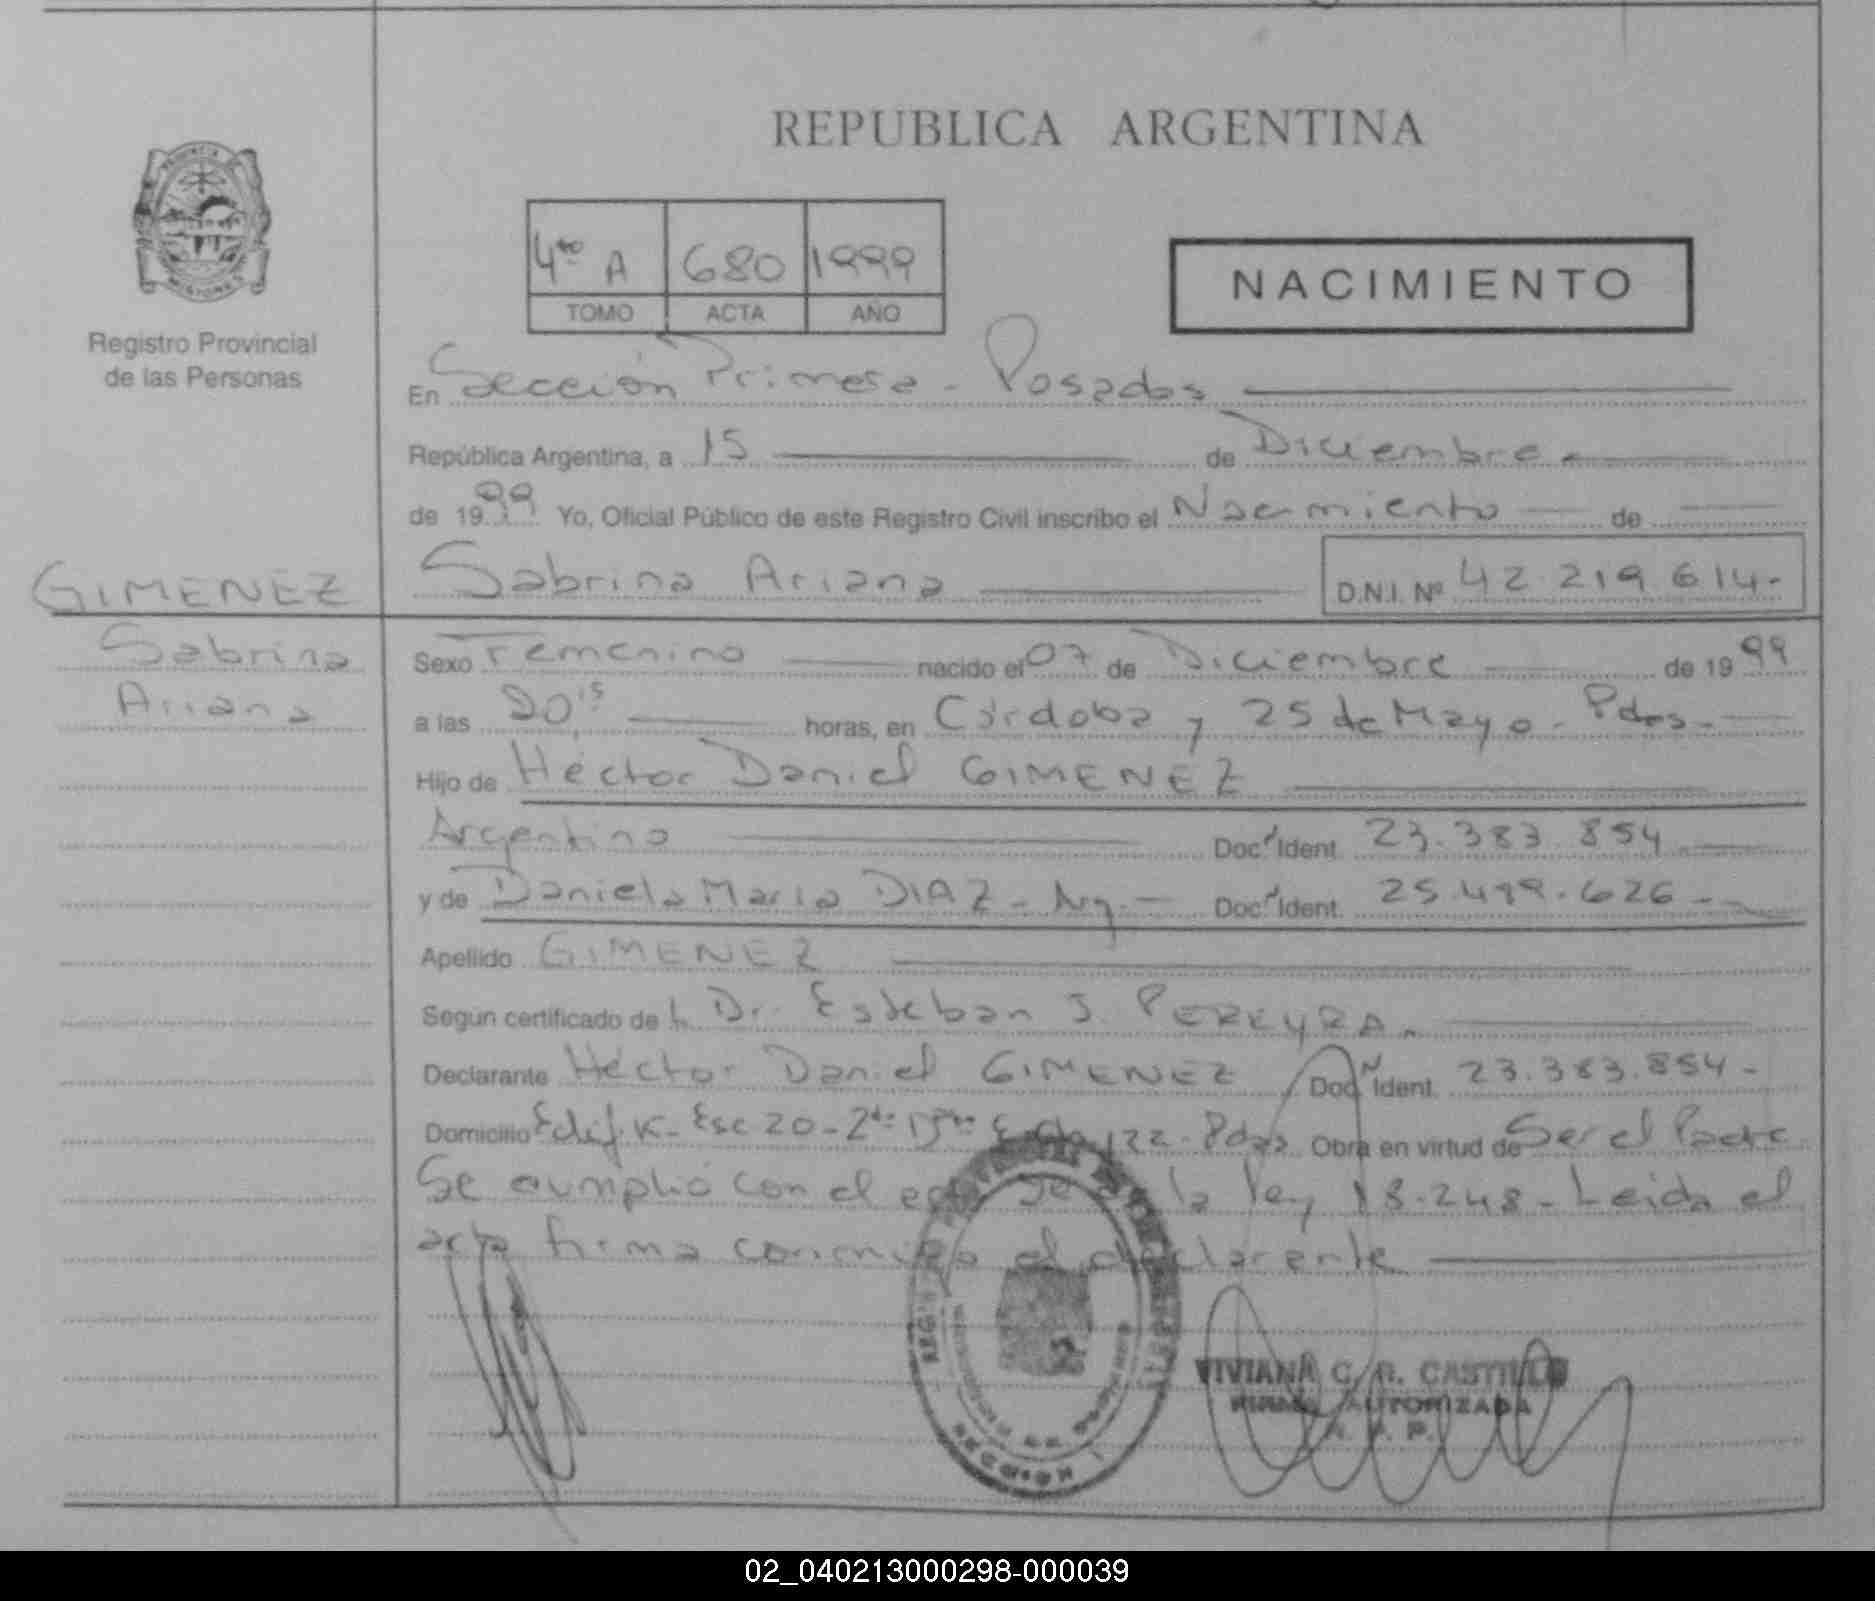 REPUBLICA ARGENTINA
PROVINCIA
MISIONES
Registro Provincial
de las Personas
4to A 680 1999
TOMO ACTA AÑO
NACIMIENTO
En Sección Primera - Posadas
República Argentina, a 15 de Diciembre
de 1999 Yo, Oficial Público de este Registro Civil inscribo el Nacimiento de
GIMENEZ Sabrina Ariana D.N.I. Nº 42.219.614-
Sabrina
Ariana
Sexo Femenino nacido el 07 de Diciembre de 1999
a las 20,15 horas, en Córdoba y 25 de Mayo - Pdas -
Hijo de Héctor Daniel GIMENEZ
Argentino Doc. Ident. 23.383.854
y de Daniela Maria DIAZ - Arg. - Doc. Ident. 25.499.626 -
Apellido GIMENEZ
Según certificado de Dr. Esteban J. PEREYRA.
Declarante Héctor Daniel GIMENEZ Doc. Ident. 23.383.854 -
Domicilio Edif. K - Esc 20 - 2do 122 - Pdas Obra en virtud de Ser el Padre
Se cumplió con el de la ley 18.248 - Leida el
acta firma conmigo el declarante
SECCION 1
VIVIANA C. R. CASTILLO
FIRMA AUTORIZADA
R. P. P.
02_040213000298-000039